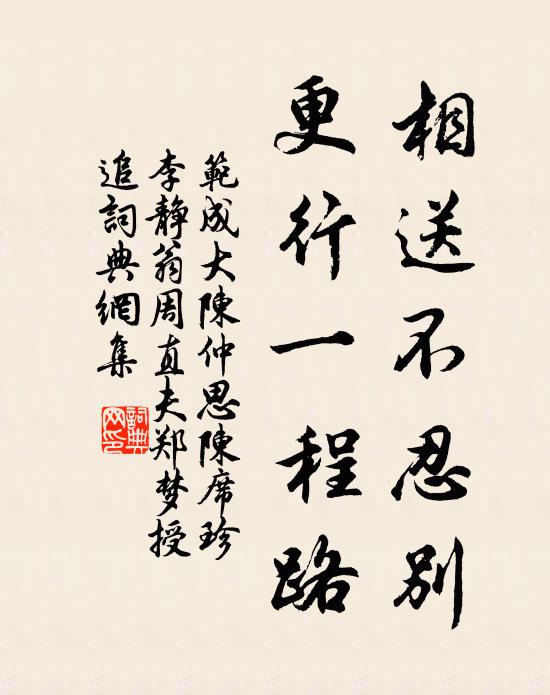 相送不忍別
更行一程路
範成大陳仲思陳席珍
李靜翁周直夫郑梦授
追詞典網集
詞典
网印